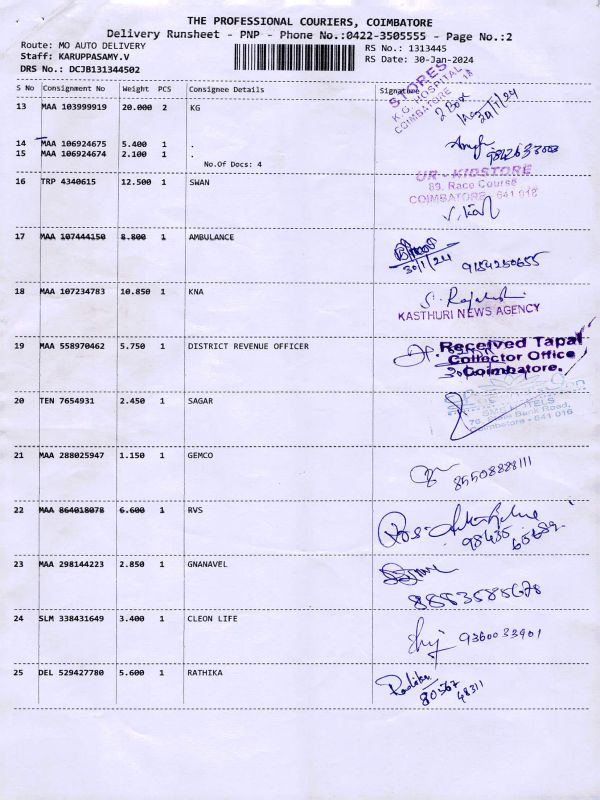 THE PROFESSIONAL COURIERS, COIMBATORE
Delivery Runsheet - PNP - Phone No.:0422-3505555 - Page No.:2
Route: MO AUTO DELIVERY
Staff: KARUPPASAMY.V
DRS No.: DCJB131344502
RS No.: 1313445
RS Date: 30-Jan-2024
S No Consignment No Weight PCS Consignee Details Signature
13 MAA 103999919 20.000 2 KG
STORES
K.G. HOSPITAL
COIMBATORE - 18
2 Box
30/1/24
14 MAA 106924675 5.400 1 .
15 MAA 106924674 2.100 1 .
No.Of Docs: 4
9842633003
16 TRP 4340615 12.500 1 SWAN
UR - KIDSTORE
89, Race Course
COIMBATORE - 641 018
17 MAA 107444150 8.800 1 AMBULANCE
30/1/24 9154250655
18 MAA 107234783 10.850 1 KNA
KASTHURI NEWS AGENCY
19 MAA 558970462 5.750 1 DISTRICT REVENUE OFFICER
Received Tapal
Collector Office
Coimbatore.
20 TEN 7654931 2.450 1 SAGAR
Bank Road,
Coimbatore - 641 016
21 MAA 288025947 1.150 1 GEMCO
85508888111
22 MAA 864018078 6.600 1 RVS
98435
65682
23 MAA 298144223 2.850 1 GNANAVEL
8883585678
24 SLM 338431649 3.400 1 CLEON LIFE
9360033901
25 DEL 529427780 5.600 1 RATHIKA
80567
48311